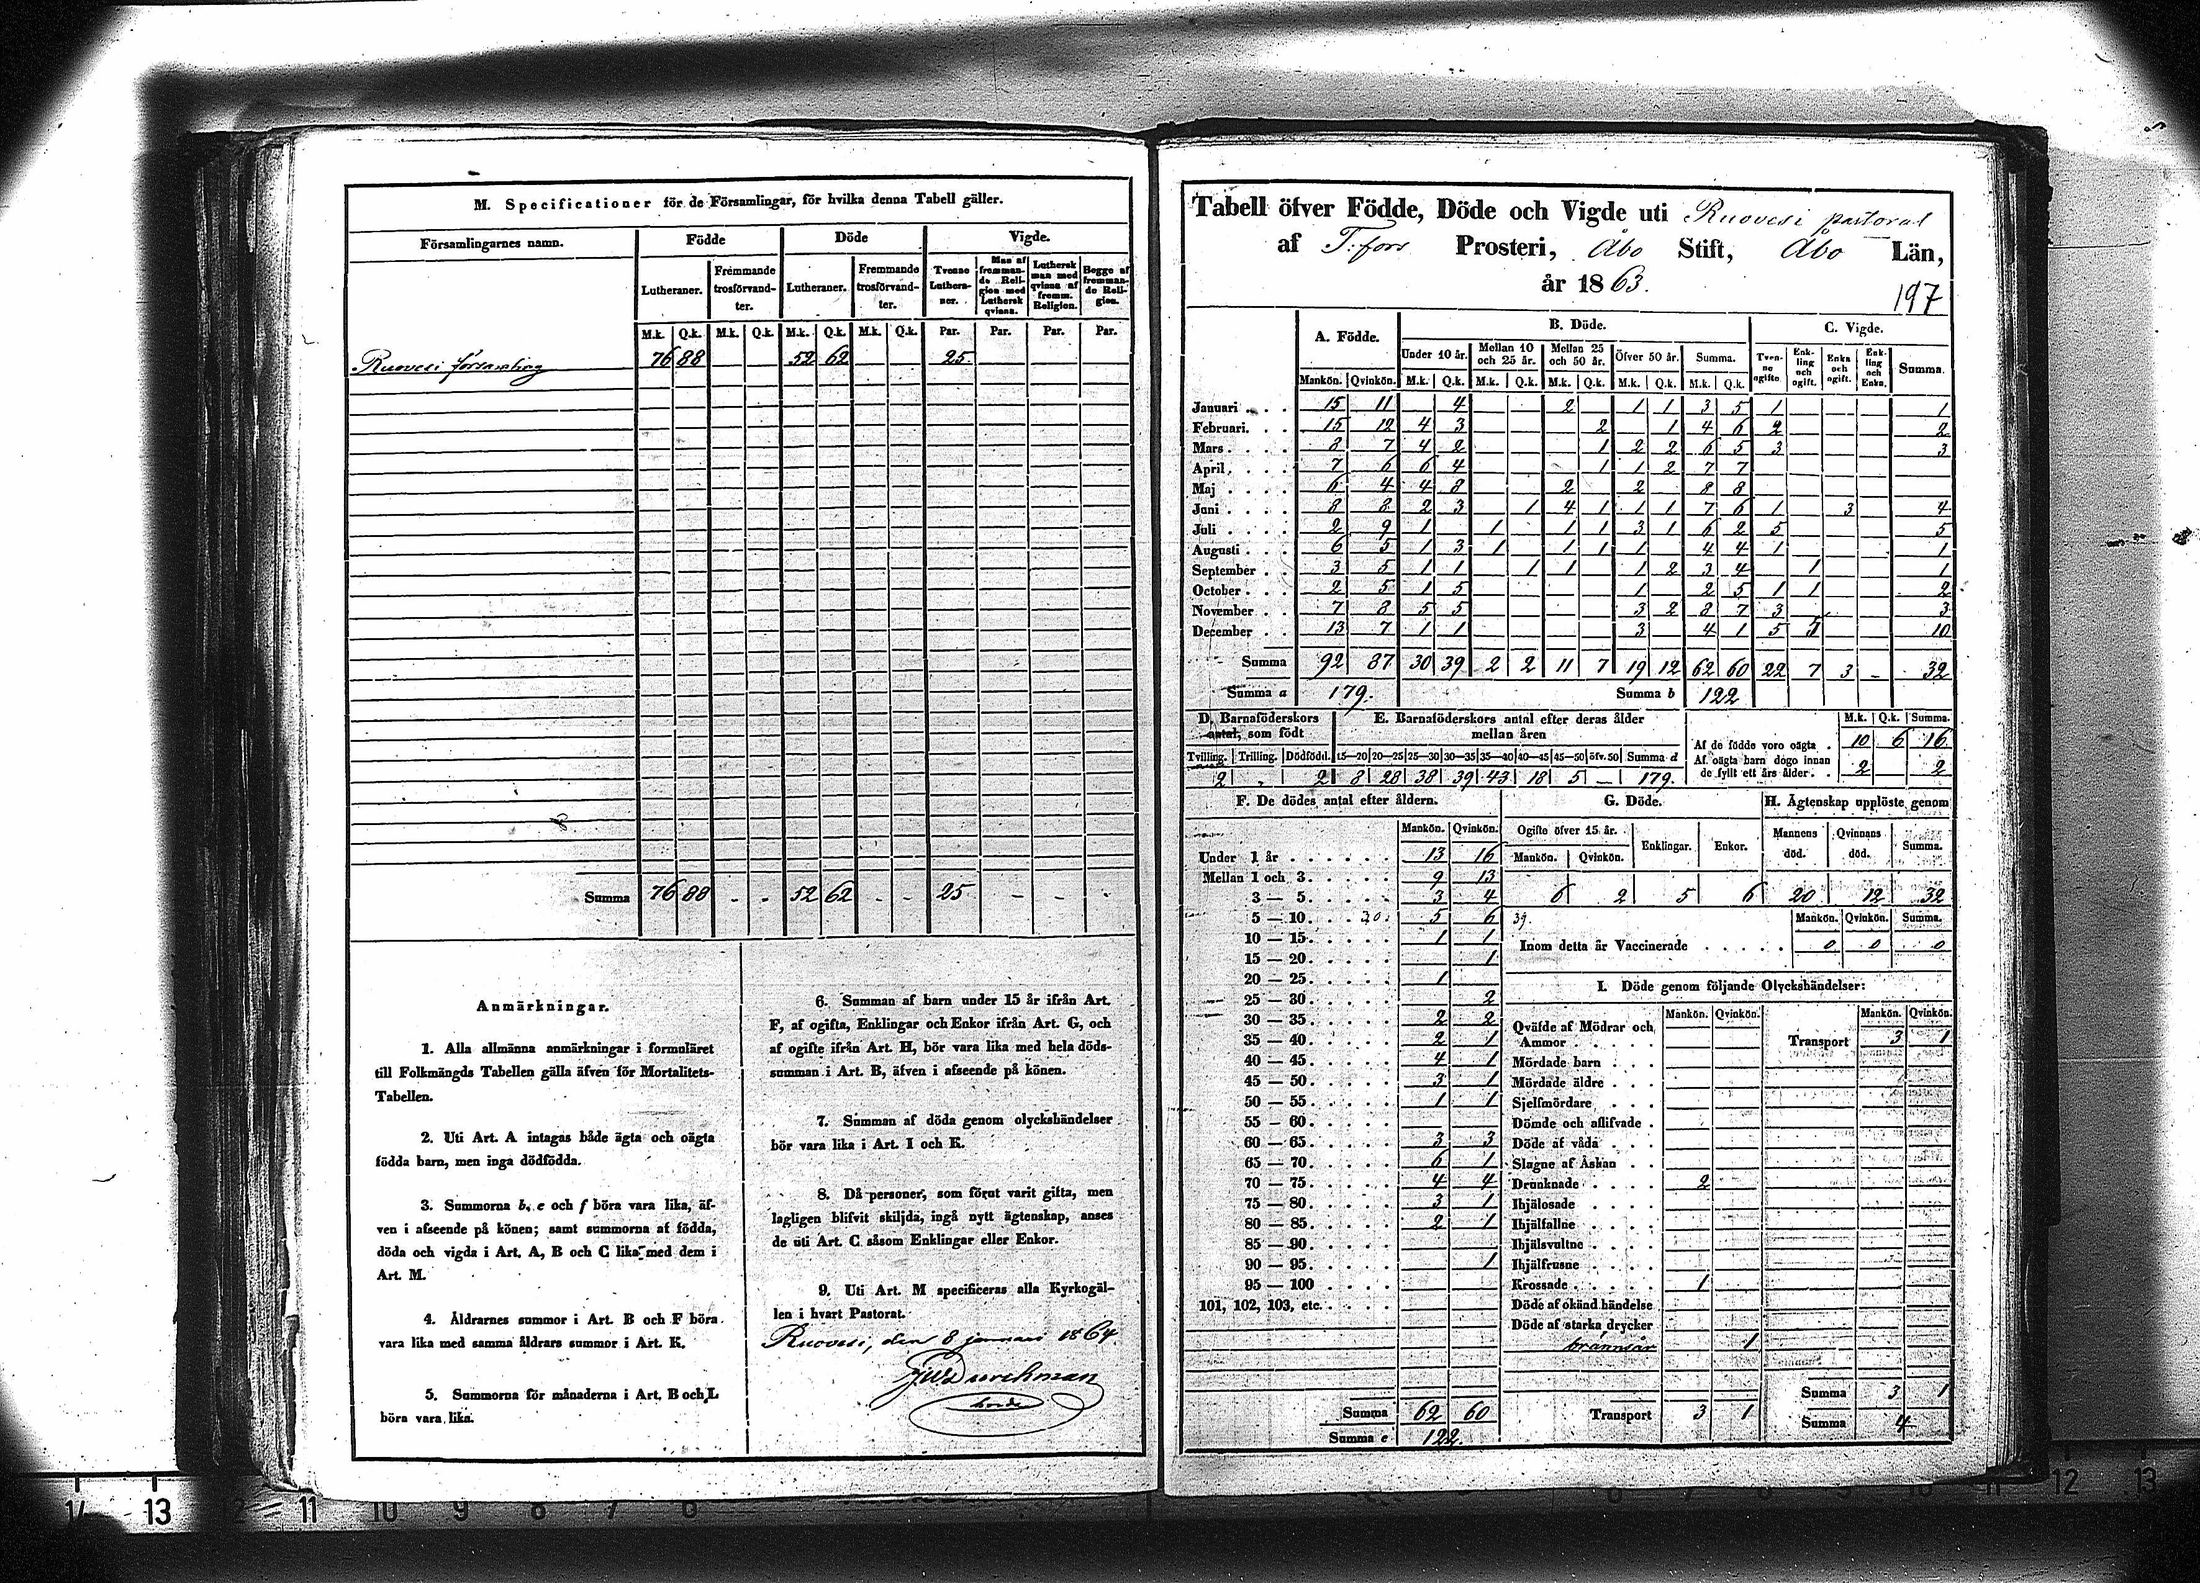 M. Specificationer för de Församlingar, för hvilka denna Tabell gäller.
Församlingarnes namn. Födde Döde Vigde.
Lutheraner. Fremmande trosförvandter. Lutheraner. Fremmande trosförvandter. Tvenne Lutheraner. Man af fremmande Religion med Luthersk qvinna. Luthersk man med qvinna af fremm. Religion. Begge af fremmande Religion.
M.k. Q.k. M.k. Q.k. M.k. Q.k. M.k. Q.k. Par. Par. Par. Par.
Ruovesi församling 76 88 52 62 25.
Summa 76 88 - - 52 62 - - 25 - - -
Anmärkningar.
1. Alla allmänna anmärkningar i formuläret
till Folkmängds Tabellen gälla äfven för Mortalitets-
Tabellen.
2. Uti Art. A intagas både ägta och oägta
födda barn, men inga dödfödda.
3. Summorna b, e och f böra vara lika, äf-
ven i afseende på könen; samt summorna af födda,
döda och vigda i Art. A, B och C lika med dem i
Art. M.
4. Åldrarnes summor i Art. B och F böra
vara lika med samma åldrars summor i Art. K.
5. Summorna för månaderna i Art. B och L
böra vara lika.
6. Summan af barn under 15 år ifrån Art.
F, af ogifta, Enklingar och Enkor ifrån Art. G, och
af ogifte ifrån Art. H, bör vara lika med hela döds-
summan i Art. B, äfven i afseende på könen.
7. Summan af döda genom olyckshändelser
bör vara lika i Art. I och K.
8. Då personer, som förut varit gifta, men
lagligen blifvit skiljda, ingå nytt ägtenskap, anses
de uti Art. C såsom Enklingar eller Enkor.
9. Uti Art. M specificeras alla Kyrkogäl-
len i hvart Pastorat.
Ruovesi, den 8 januari 1864.
Durchman
Tabell öfver Födde, Döde och Vigde uti Ruovesi pastorat
af T:fors Prosteri, Åbo Stift, Åbo Län,
år 1863.
197
A. Födde. B. Döde. C. Vigde.
Under 10 år. Mellan 10 och 25 år. Mellan 25 och 50 år. Öfver 50 år. Summa. Tvenne ogifte Enkling och ogift. Enka och ogift. Enkling och Enka. Summa.
Mankön. Qvinkön. M.k. Q.k. M.k. Q.k. M.k. Q.k. M.k. Q.k. M.k. Q.k.
Januari 15 11 4 2 1 1 3 5 1 1
Februari 15 12 4 3 2 1 4 6 2 2
Mars 8 7 4 2 1 2 2 6 5 3 3
April 7 6 6 4 1 1 2 7 7
Maj 6 4 4 8 2 2 8 8
Juni 8 8 2 3 1 4 1 1 1 7 6 1 3 4
Juli 2 9 1 1 1 1 3 1 6 2 5 5
Augusti 6 5 1 3 1 1 1 1 4 4 1 1
September 3 5 1 1 1 1 1 2 3 4 1 1
October 2 5 1 5 1 2 5 1 1 2
November 7 8 5 5 3 2 8 7 3 3
December 13 7 1 1 3 4 1 5 5 10
Summa 92 87 30 39 2 2 11 7 19 12 62 60 22 7 3 - 32
Summa a 179. Summa b 122
D. Barnaföderskors antal, som födt E. Barnaföderskors antal efter deras ålder mellan åren M.k. Q.k. Summa.
Tvilling. Trilling. Dödfödd. 15—20 20—25 25—30 30—35 35—40 40—45 45—50 öfv. 50 Summa d
2 - 2 8 28 38 39 43 18 5 — 179.
Af de födde voro oägta 10 6 16
Af oägta barn dogo innan
de fyllt ett års ålder 2 2
F. De dödes antal efter åldern.
Mankön. Qvinkön.
Under 1 år 13 16
Mellan 1 och 3 9 13
3 — 5 3 4
5 — 10 30 5 6 39.
10 — 15 1 1
15 — 20 1
20 — 25 1
25 — 30 2
30 — 35 2 2
35 — 40 2 1
40 — 45 4 1
45 — 50 3 1
50 — 55 1 1
55 — 60
60 — 65 3 3
65 — 70 6 1
70 — 75 4 4
75 — 80 3 1
80 — 85 2 1
85 — 90
90 — 95 1
95 — 100
101, 102, 103, etc.
Summa 62 60
Summa e 122.
G. Döde.
Ogifte öfver 15 år. Enklingar. Enkor.
Mankön. Qvinkön.
6 2 5 6
H. Ägtenskap upplöste genom
Mannens död. Qvinnans död. Summa.
20 12 32
Mankön. Qvinkön. Summa.
Inom detta år Vaccinerade 0 0 0
I. Döde genom följande Olyckshändelser:
Mankön. Qvinkön. Mankön. Qvinkön.
Qväfde af Mödrar och
Ammor Transport 3 1
Mördade barn
Mördade äldre
Sjelfmördare
Dömde och aflifvade
Döde af våda
Slagne af Åskan
Drunknade 2
Ihjälosade
Ihjälfallne
Ihjälsvultne
Ihjälfrusne
Krossade 1
Döde af okänd händelse
Döde af starka drycker
brännsår 1
Summa 3 1
Transport 3 1 Summa 4
14 13 12 11 10 9 8 7 6
6 7 8 9 10 11 12 13